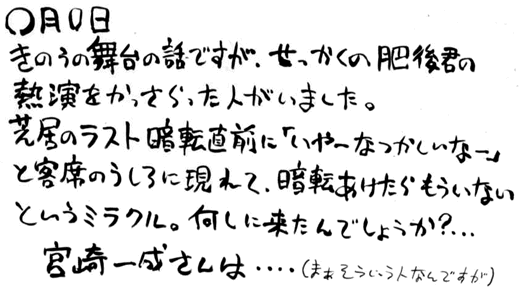 〇月〇日
きのうの舞台の話ですが、せっかくの肥後君の
熱演をかっさらった人がいました。
芝居のラスト暗転直前に「いやーなつかしいなー」
と客席のうしろに現れて、暗転あけたらもういない
というミラクル。何しに来たんでしょうか?…
宮崎一成さんは‥‥(まぁそういう人なんですが)